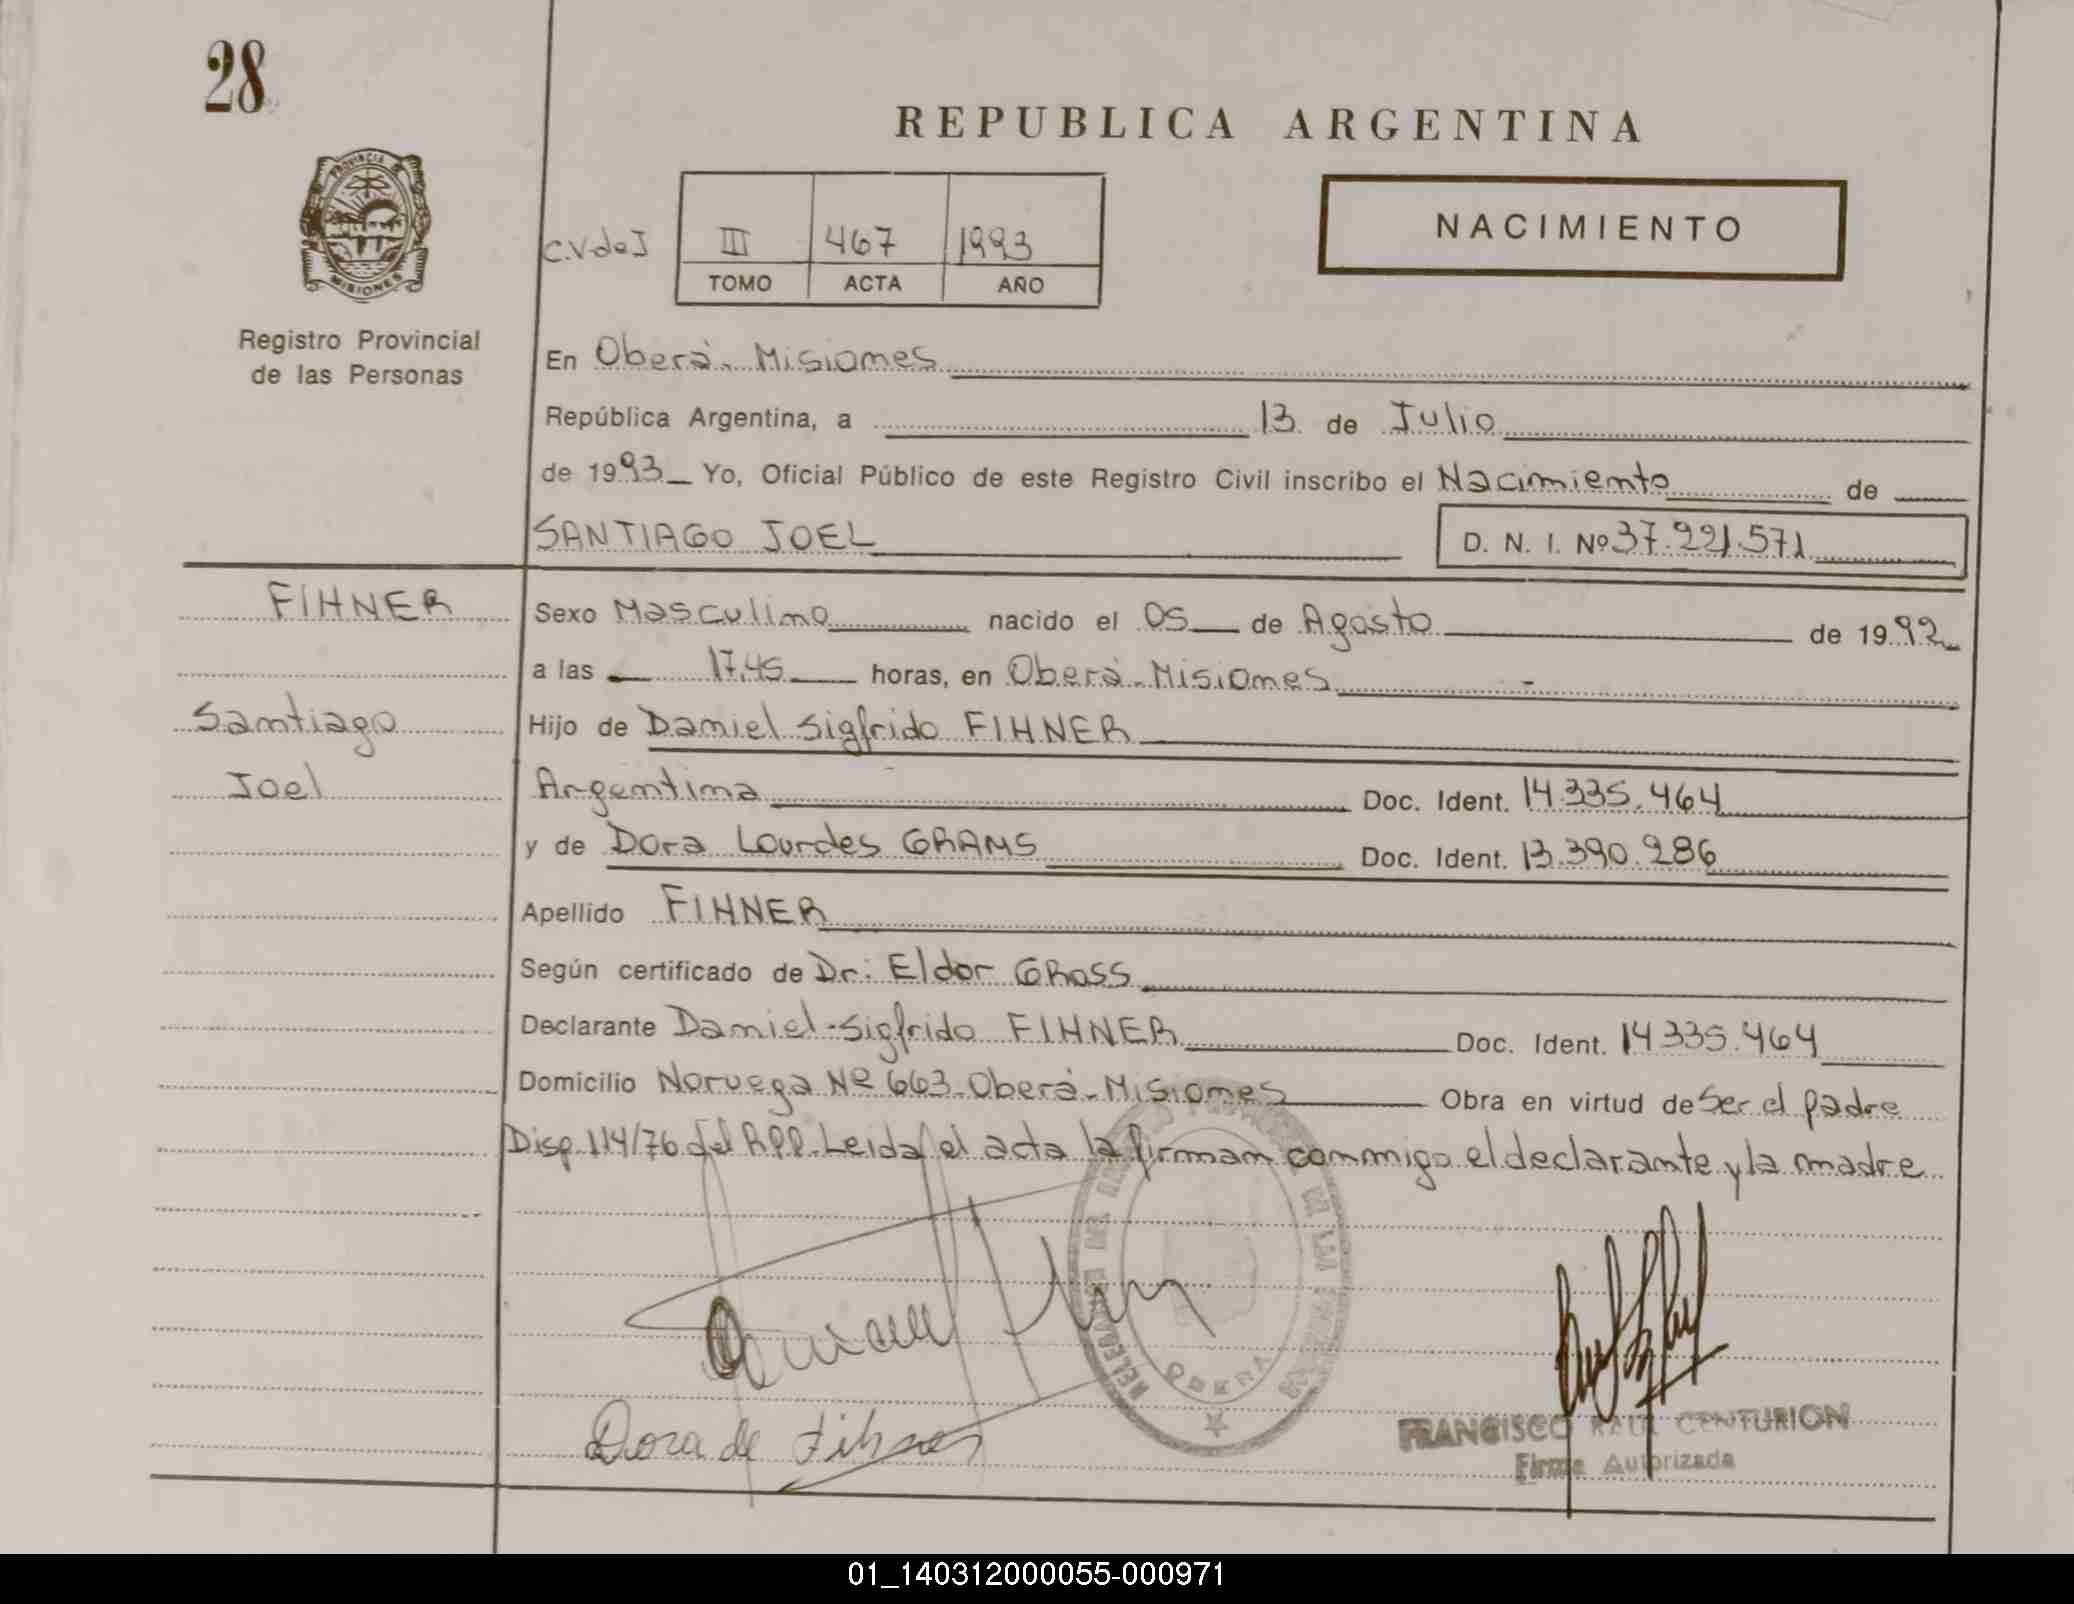 28
REPUBLICA ARGENTINA
PROVINCIA DE
MISIONES
NACIMIENTO
C.V.de J III 467 1993
TOMO ACTA AÑO
Registro Provincial
de las Personas
En Oberá-Misiones
República Argentina, a 13 de Julio
de 1993 Yo, Oficial Público de este Registro Civil inscribo el Nacimiento de
SANTIAGO JOEL D. N. I. Nº 37.221.571
FIHNER
Sexo Masculino nacido el 05 de Agosto de 1992
a las 17,45 horas, en Oberá-Misiones
Santiago
Hijo de Daniel Sigfrido FIHNER
Joel
Argentina Doc. Ident. 14.335.464
y de Dora Lourdes GRAMS Doc. Ident. 13.390.286
Apellido FIHNER
Según certificado de Dr: Eldor GROSS
Declarante Daniel-Sigfrido FIHNER Doc. Ident. 14.335.464
Domicilio Noruega Nº 663-Oberá-Misiones Obra en virtud de Ser el padre
Disp.114/76 del RPP.Leida el acta la firman conmigo el declarante y la madre
OBERA
Dora de Fihner
FRANCISCO RAUL CENTURION
Firma Autorizada
01_140312000055-000971